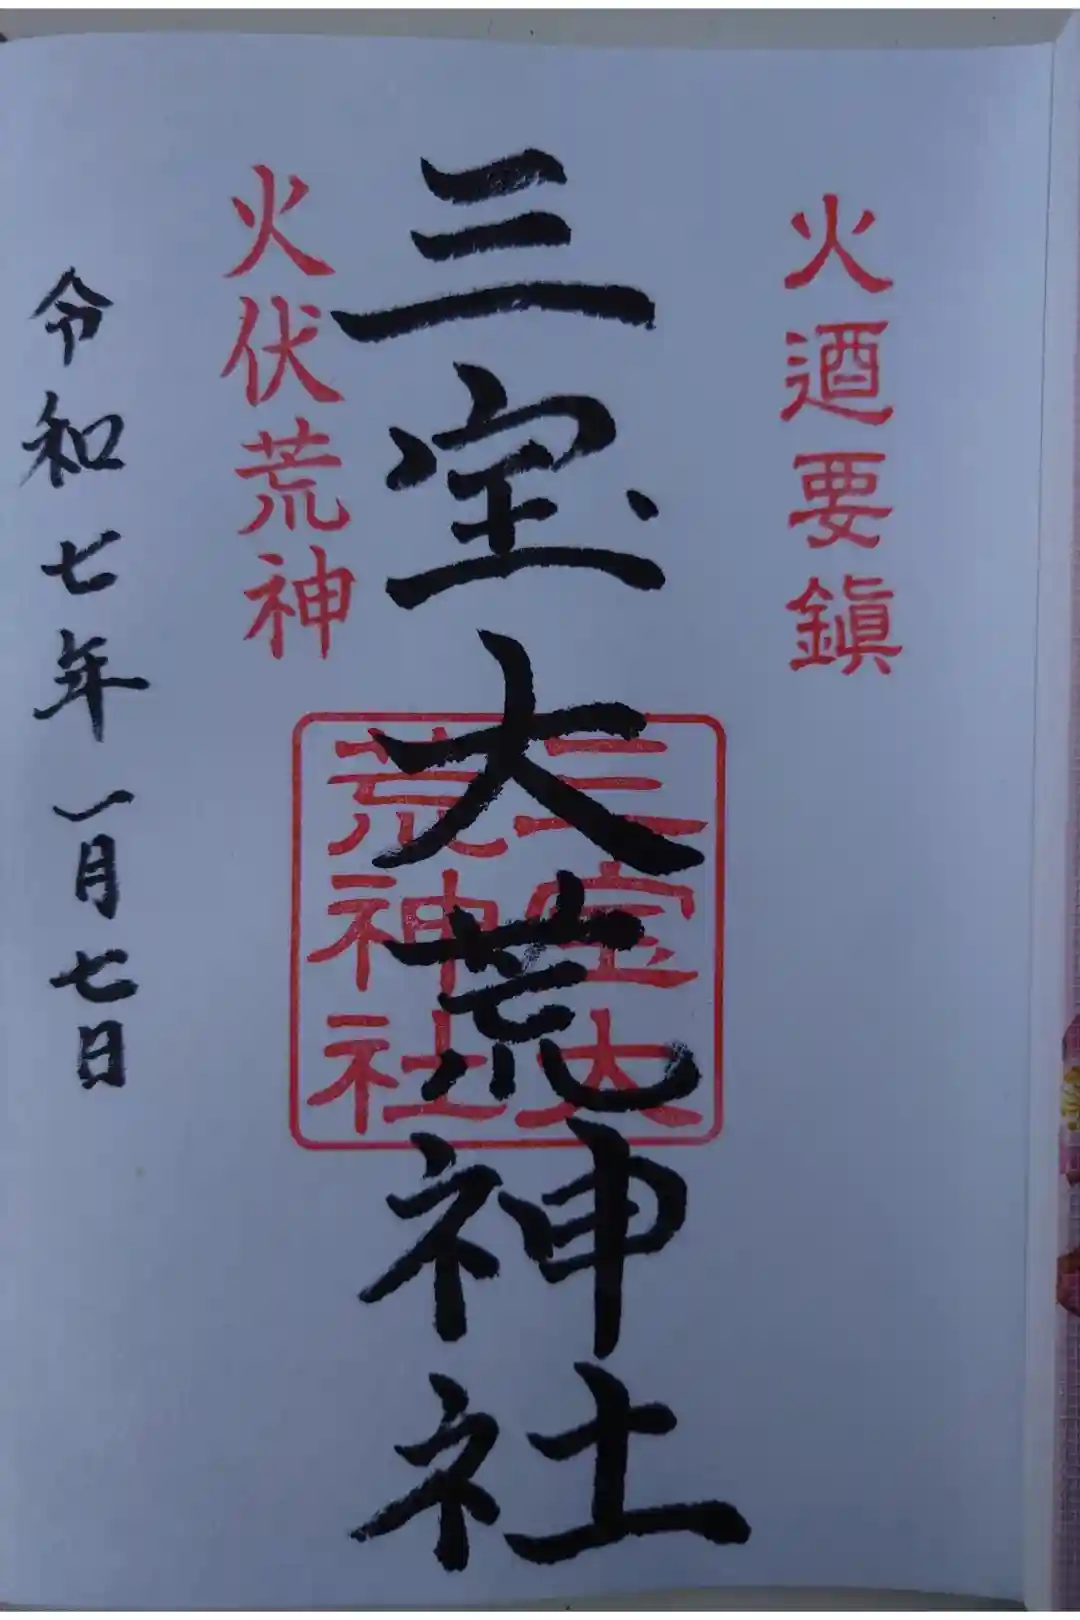 火迺要鎮
三宝大荒神社
三宝大
荒神社
火伏荒神
令和七年一月七日